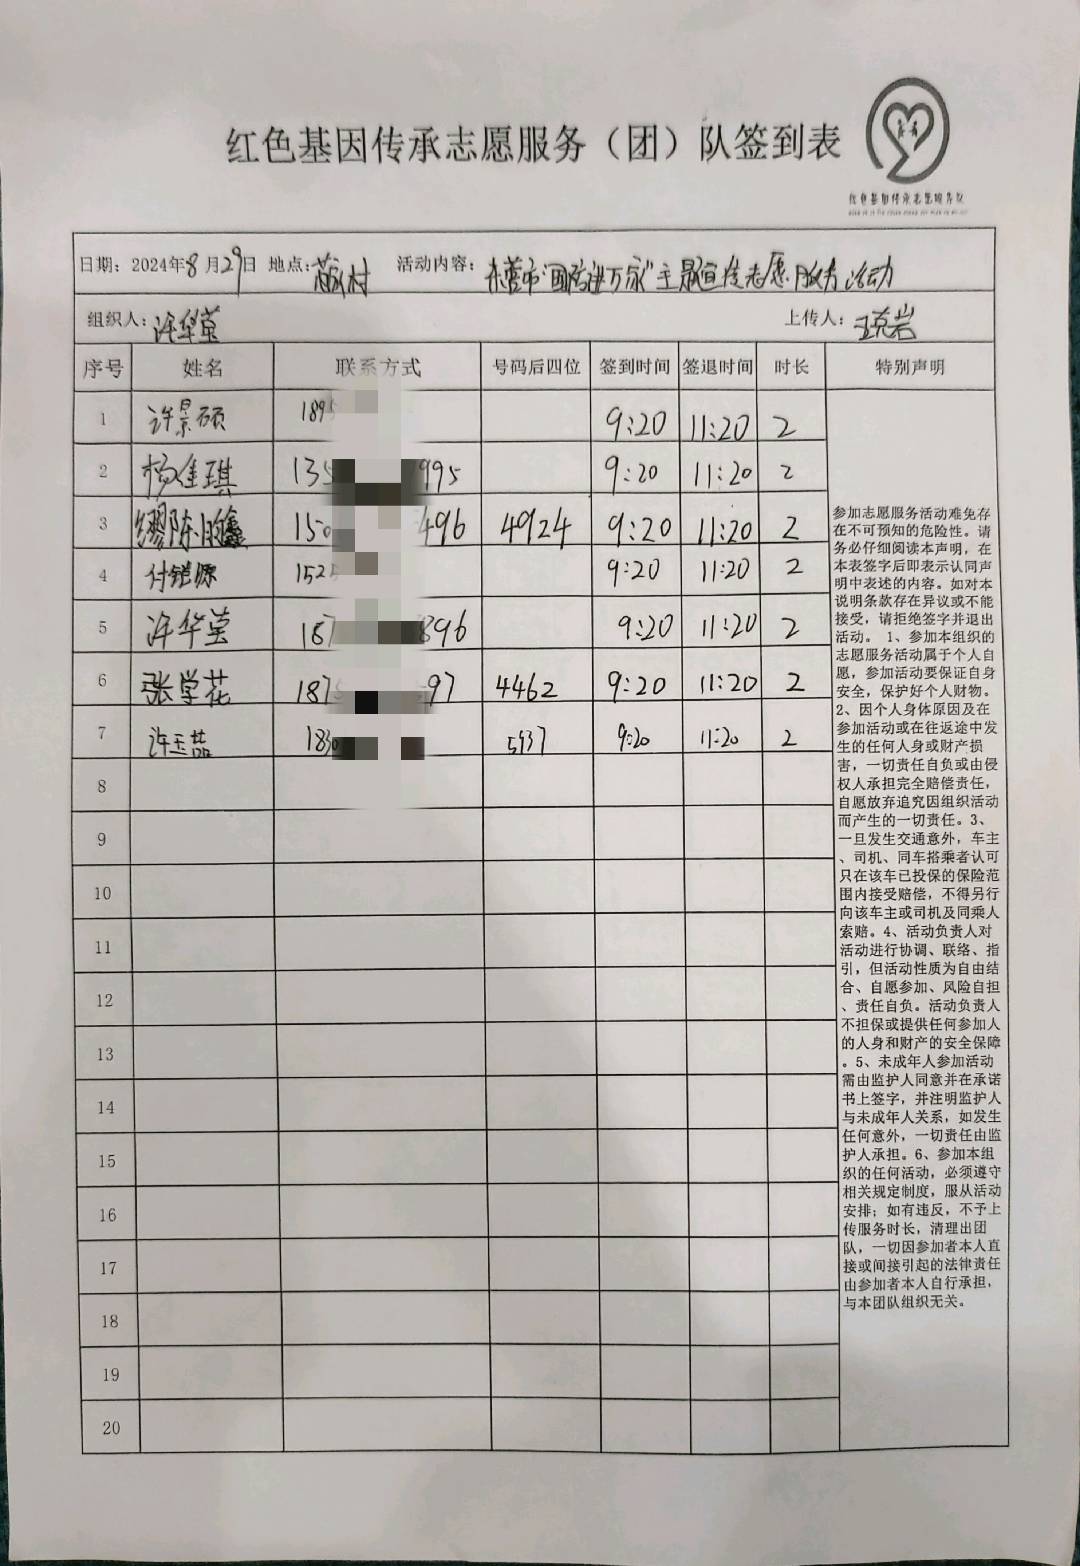 红色基因传承志愿服务（团）队签到表
红色基因传承志愿服务队
日期：2024年8月29日 地点： 村 活动内容：东营市"国防进万家"主题宣传志愿服务活动
组织人：许华莹 上传人：王克岩
序号 姓名 联系方式 号码后四位 签到时间 签退时间 时长 特别声明
1 许景硕 1895 9:20 11:20 2
2 杨佳琪 135 995 9:20 11:20 2
3 缪陈 鑫 150 496 4924 9:20 11:20 2
4 付铠源 1525 9:20 11:20 2
5 许华莹 187 896 9:20 11:20 2
6 张学花 1875 97 4462 9:20 11:20 2
7 许玉 1830 5937 9:20 11:20 2
8
9
10
11
12
13
14
15
16
17
18
19
20
参加志愿服务活动难免存
在不可预知的危险性。请
务必仔细阅读本声明，在
本表签字后即表示认同声
明中表述的内容。如对本
说明条款存在异议或不能
接受，请拒绝签字并退出
活动。 1、参加本组织的
志愿服务活动属于个人自
愿，参加活动要保证自身
安全，保护好个人财物。
2、因个人身体原因及在
参加活动或在往返途中发
生的任何人身或财产损
害，一切责任自负或由侵
权人承担完全赔偿责任，
自愿放弃追究因组织活动
而产生的一切责任。3、
一旦发生交通意外，车主
、司机、同车搭乘者认可
只在该车已投保的保险范
围内接受赔偿，不得另行
向该车主或司机及同乘人
索赔。4、活动负责人对
活动进行协调、联络、指
引，但活动性质为自由结
合、自愿参加、风险自担
、责任自负。活动负责人
不担保或提供任何参加人
的人身和财产的安全保障
。5、未成年人参加活动
需由监护人同意并在承诺
书上签字，并注明监护人
与未成年人关系，如发生
任何意外，一切责任由监
护人承担。6、参加本组
织的任何活动，必须遵守
相关规定制度，服从活动
安排；如有违反，不予上
传服务时长，清理出团
队，一切因参加者本人直
接或间接引起的法律责任
由参加者本人自行承担，
与本团队组织无关。